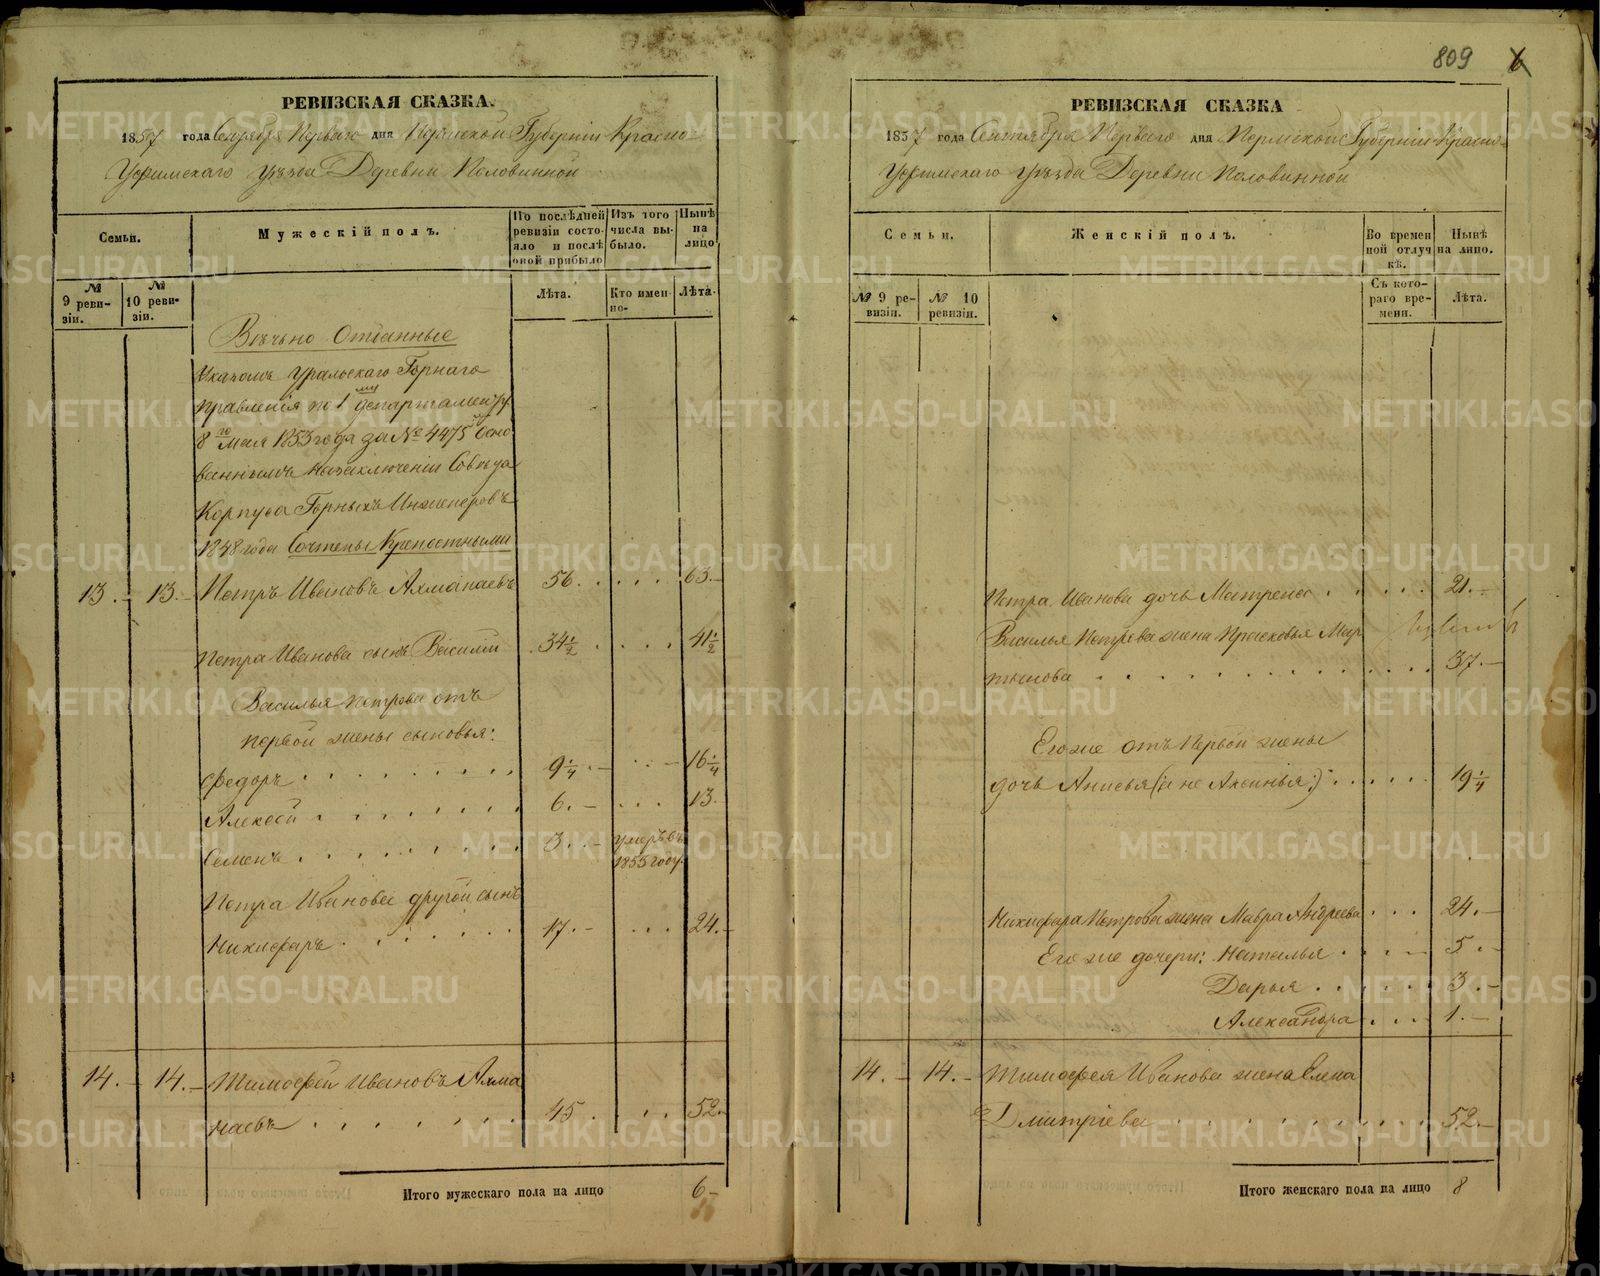 РЕВИЗСКАЯ СКАЗКА.
1857 года Сентября Перваго дня Пермской Губерніи Красно-
Уфимскаго уѣзда Деревни Половинной
Семьи.
Мужескій полъ.
По послѣдней ревизіи состояло и послѣ оной прибыло
Изъ того числа выбыло.
Нынѣ на лицо
№ 9 ревизіи.
№ 10 ревизіи.
Лѣта.
Кто именно.
Лѣта.
Вѣчьно Отданные
Указомъ Уральскаго Горнаго
правленія по 1му департаменту
8го Мая 1853 года за № 4475 й осно
ваннымъ на заключеніи Совѣта
Корпуса Горныхъ Инженеровъ
1848 года Сочтены Крепостными
13. – 13. – Петръ Ивановъ Ахманаевъ 56. . . . . 63. –
Петра Иванова сынъ Василій 34½ . . . . 41½
Василья Петрова отъ
первой жены сыновья:
Федоръ . . . . . . . . 9¼ . – . . – 16¼
Алексѣй . . . . . . . 6. – . . . 13.
Семенъ . . . . . . . . 3. – умеръ въ
1855 году.
Петра Иванова другой сынъ
Никифаръ . . . . . . 17. – . . . 24. –
14. – 14. – Тимофей Ивановъ Ахма
наевъ . . . . . . 45 . . . . 52. –
Итого мужескаго пола на лицо 6 –
809 6
РЕВИЗСКАЯ СКАЗКА
1857 года Сентября Перваго дня Пермской Губерніи Красно-
Уфимскаго уѣзда Деревни Половинной
Семьи.
Женскій полъ.
Во временной отлучкѣ.
Нынѣ на лицо.
№ 9 ревизіи.
№ 10 ревизіи.
Съ котораго времени.
Лѣта.
Петра Иванова дочь Матрена . . . . . 21. –
Василья Петрова жена Прасковья Мар
тынова . . . . . . . . . . . 37. –
Его же отъ Первой жены
дочь Анисья (а не Аксинья:) . . . . . 19¼
Никифара Петрова жена Мавра Андреева . . . 24. –
Его же дочери: Наталья . . . . 5. –
Дарья . . . . . . 3. –
Александра . . . . 1. –
14. – 14. – Тимофея Иванова жена Елена
Дмитріева . . . . . . . . . . 52. –
Итого женскаго пола на лицо 8
METRIKI.GASO-URAL.RU